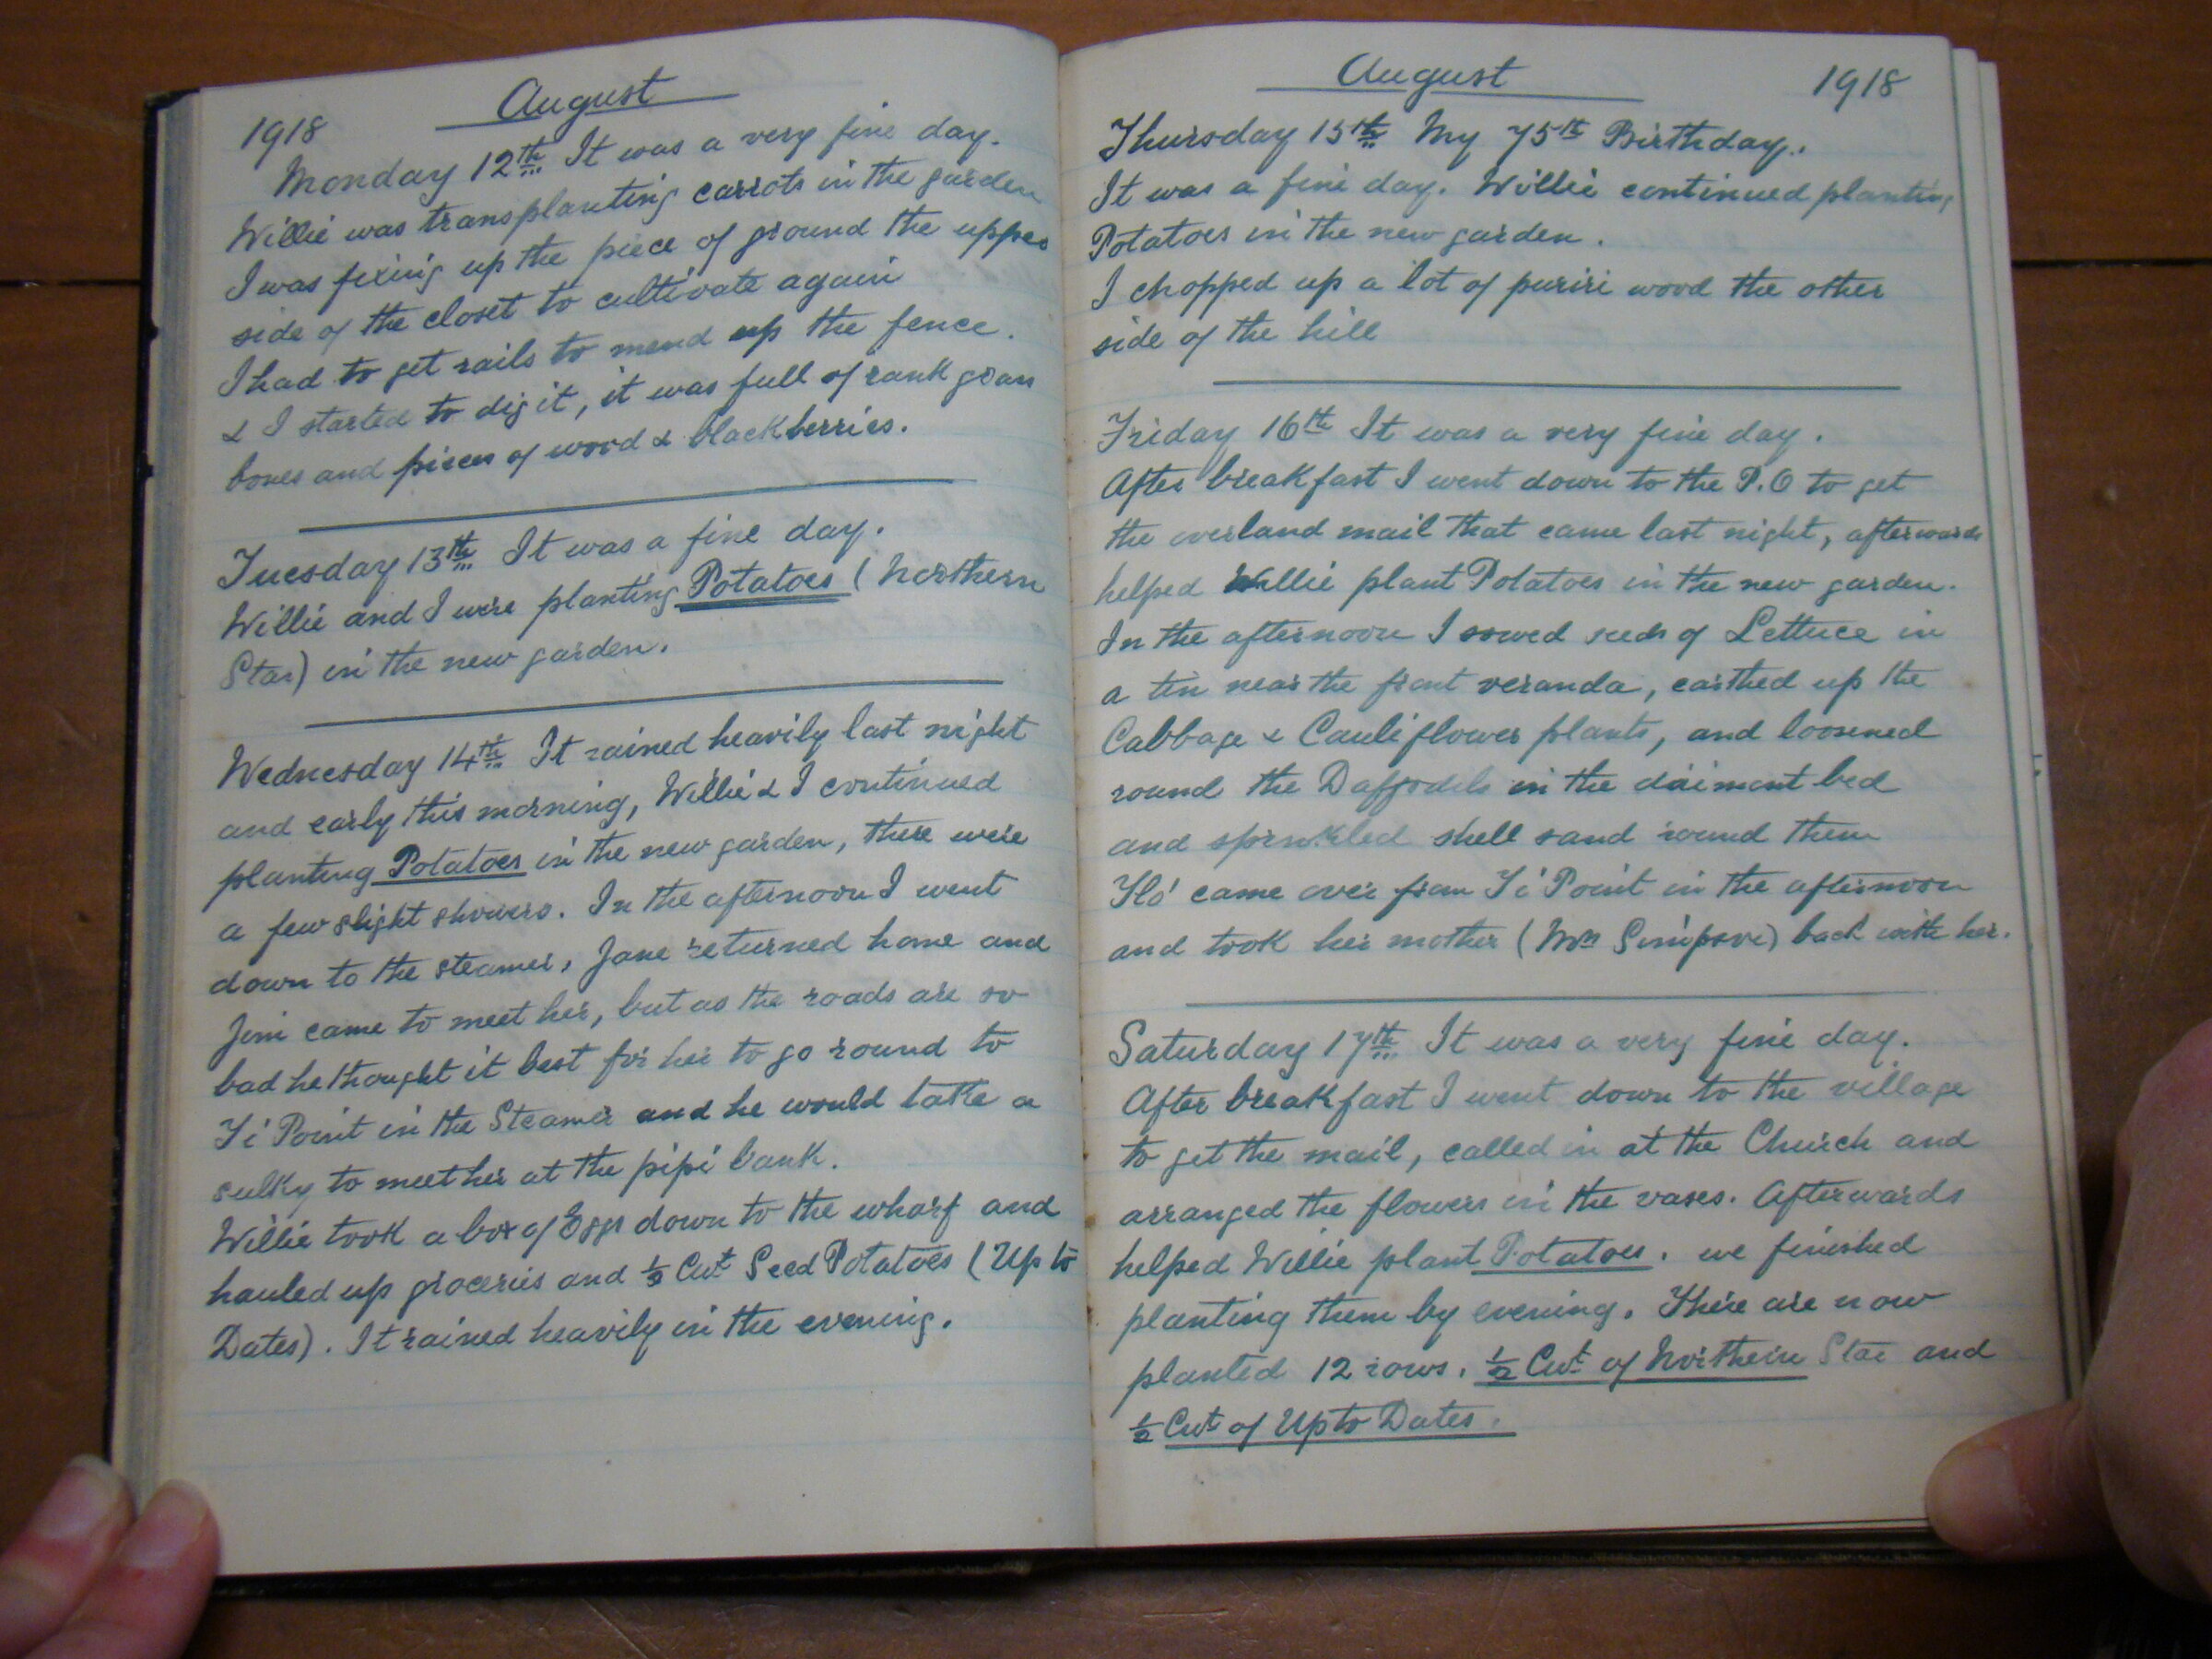 August
1918
Monday 12th It was a very fine day.
Willie was transplanting carrots in the garden
I was fixing up the piece of ground the upper
side of the closet to cultivate again
I had to get rails to mend up the fence.
& I started to dig it, it was full of rank grass
bones and pieces of wood & blackberries.
Tuesday 13th It was a fine day.
Willie and I were planting Potatoes (Northern
Star) in the new garden.
Wednesday 14th It rained heavily last night
and early this morning, Willie & I continued
planting Potatoes in the new garden, there were
a few slight showers. In the afternoon I went
down to the steamer, Jane returned home and
Jim came to meet her, but as the roads are so
bad he thought it best for her to go round to
Ti Point in the Steamer and he would take a
sulky to meet her at the pipi bank.
Willie took a box of Eggs down to the wharf and
hauled up groceries and ½ Cwt Seed Potatoes (Up to
Dates). It rained heavily in the evening.
August
1918
Thursday 15th My 75th Birthday.
It was a fine day. Willie continued planting
Potatoes in the new garden.
I chopped up a lot of puriri wood the other
side of the hill
Friday 16th It was a very fine day.
After breakfast I went down to the P.O to get
the overland mail that came last night, afterwards
helped Willie plant Potatoes in the new garden.
In the afternoon I sowed seeds of Lettuce in
a tin near the front veranda, earthed up the
Cabbage & Cauliflower plants, and loosened
round the Daffodils in the daimont bed
and sprinkled shell sand round them
Flo' came over from Ti Point in the afternoon
and took her mother (Mrs Simpson) back with her.
Saturday 17th It was a very fine day.
After breakfast I went down to the village
to get the mail, called in at the Church and
arranged the flowers in the vases. Afterwards
helped Willie plant Potatoes. we finished
planting them by evening. There are now
planted 12 rows. ½ Cwt of Northern Star and
½ Cwt of Up to Dates.